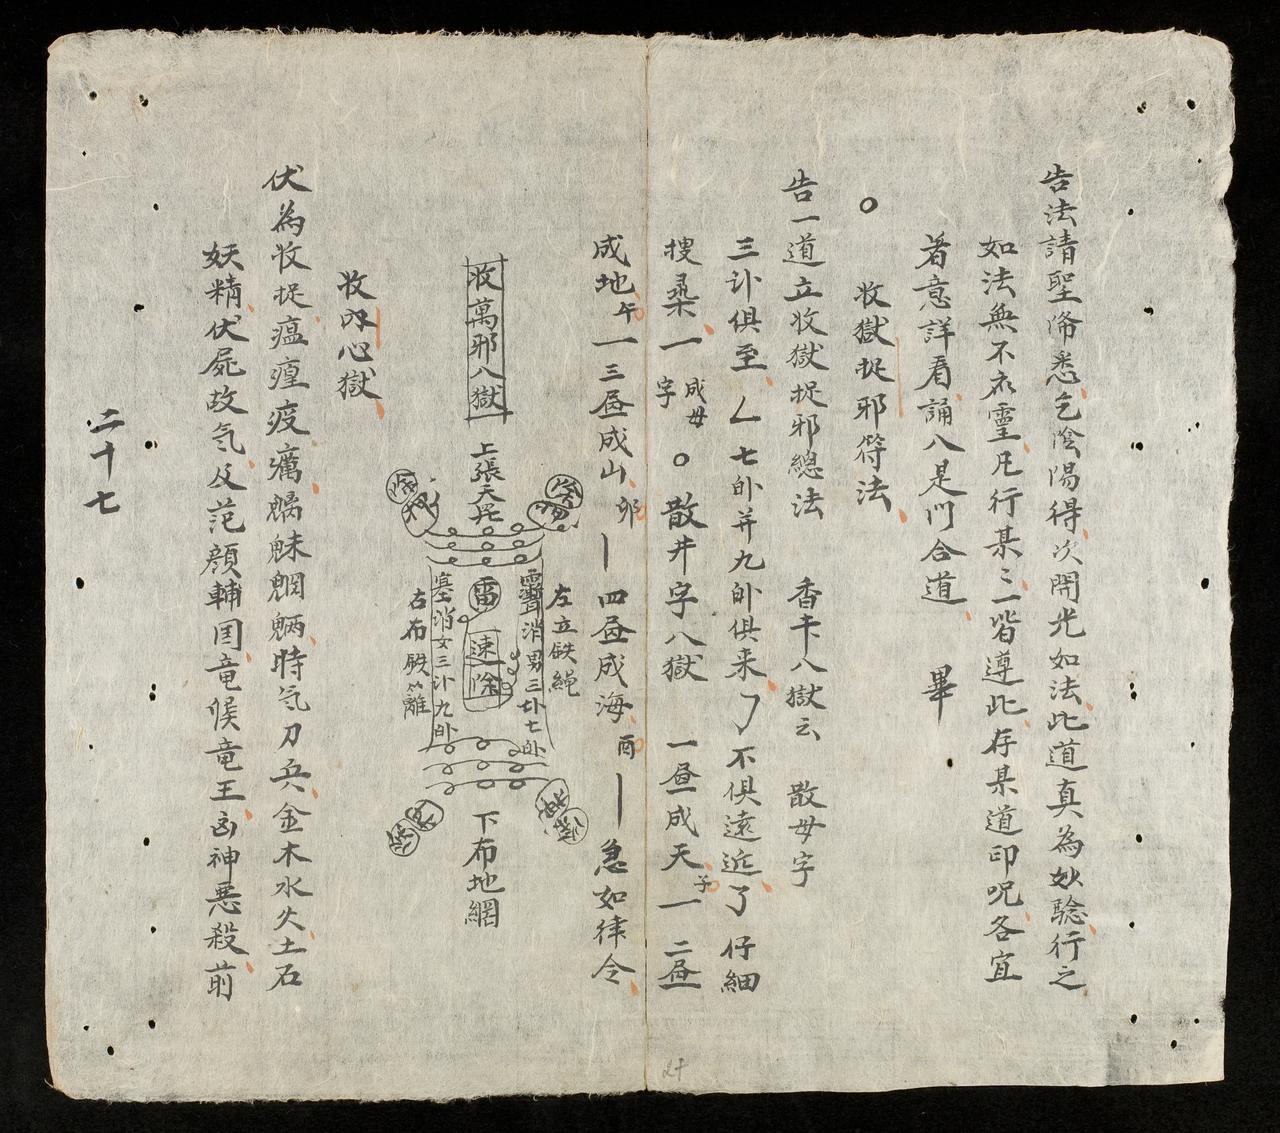 告法請聖帝悉乞陰陽得次開光如法此道真為妙驗行之
如法無不衣靈凡行某三皆遵此存某道印呪各宜
著意詳看誦八是門合道 畢
○ 收獄捉邪符法
告一道立收獄捉邪總法 香卡八獄云 散毋字
三卦俱至 ㄥ 七卧并九卧俱来 了 不俱遠近了仔細
搜尋一 成毋字 ○ 散井字八獄 一昼成天 子 一 二昼
成地 午 一 三昼成山 卯 丨 四昼成海 酉 丨 急如律令
收萬邪八獄
上張天
左立鉄繩
消男三卦七卧
雷
速除
消女三卦九卧
右布鉄籬
下布地網
收内心獄
伏為收捉瘟瘟疫癘魑魅魍魎時氣刀兵金木水火土石
妖精伏屍故氣及范顔輔囯竜候竜王凶神悪殺前
二十七